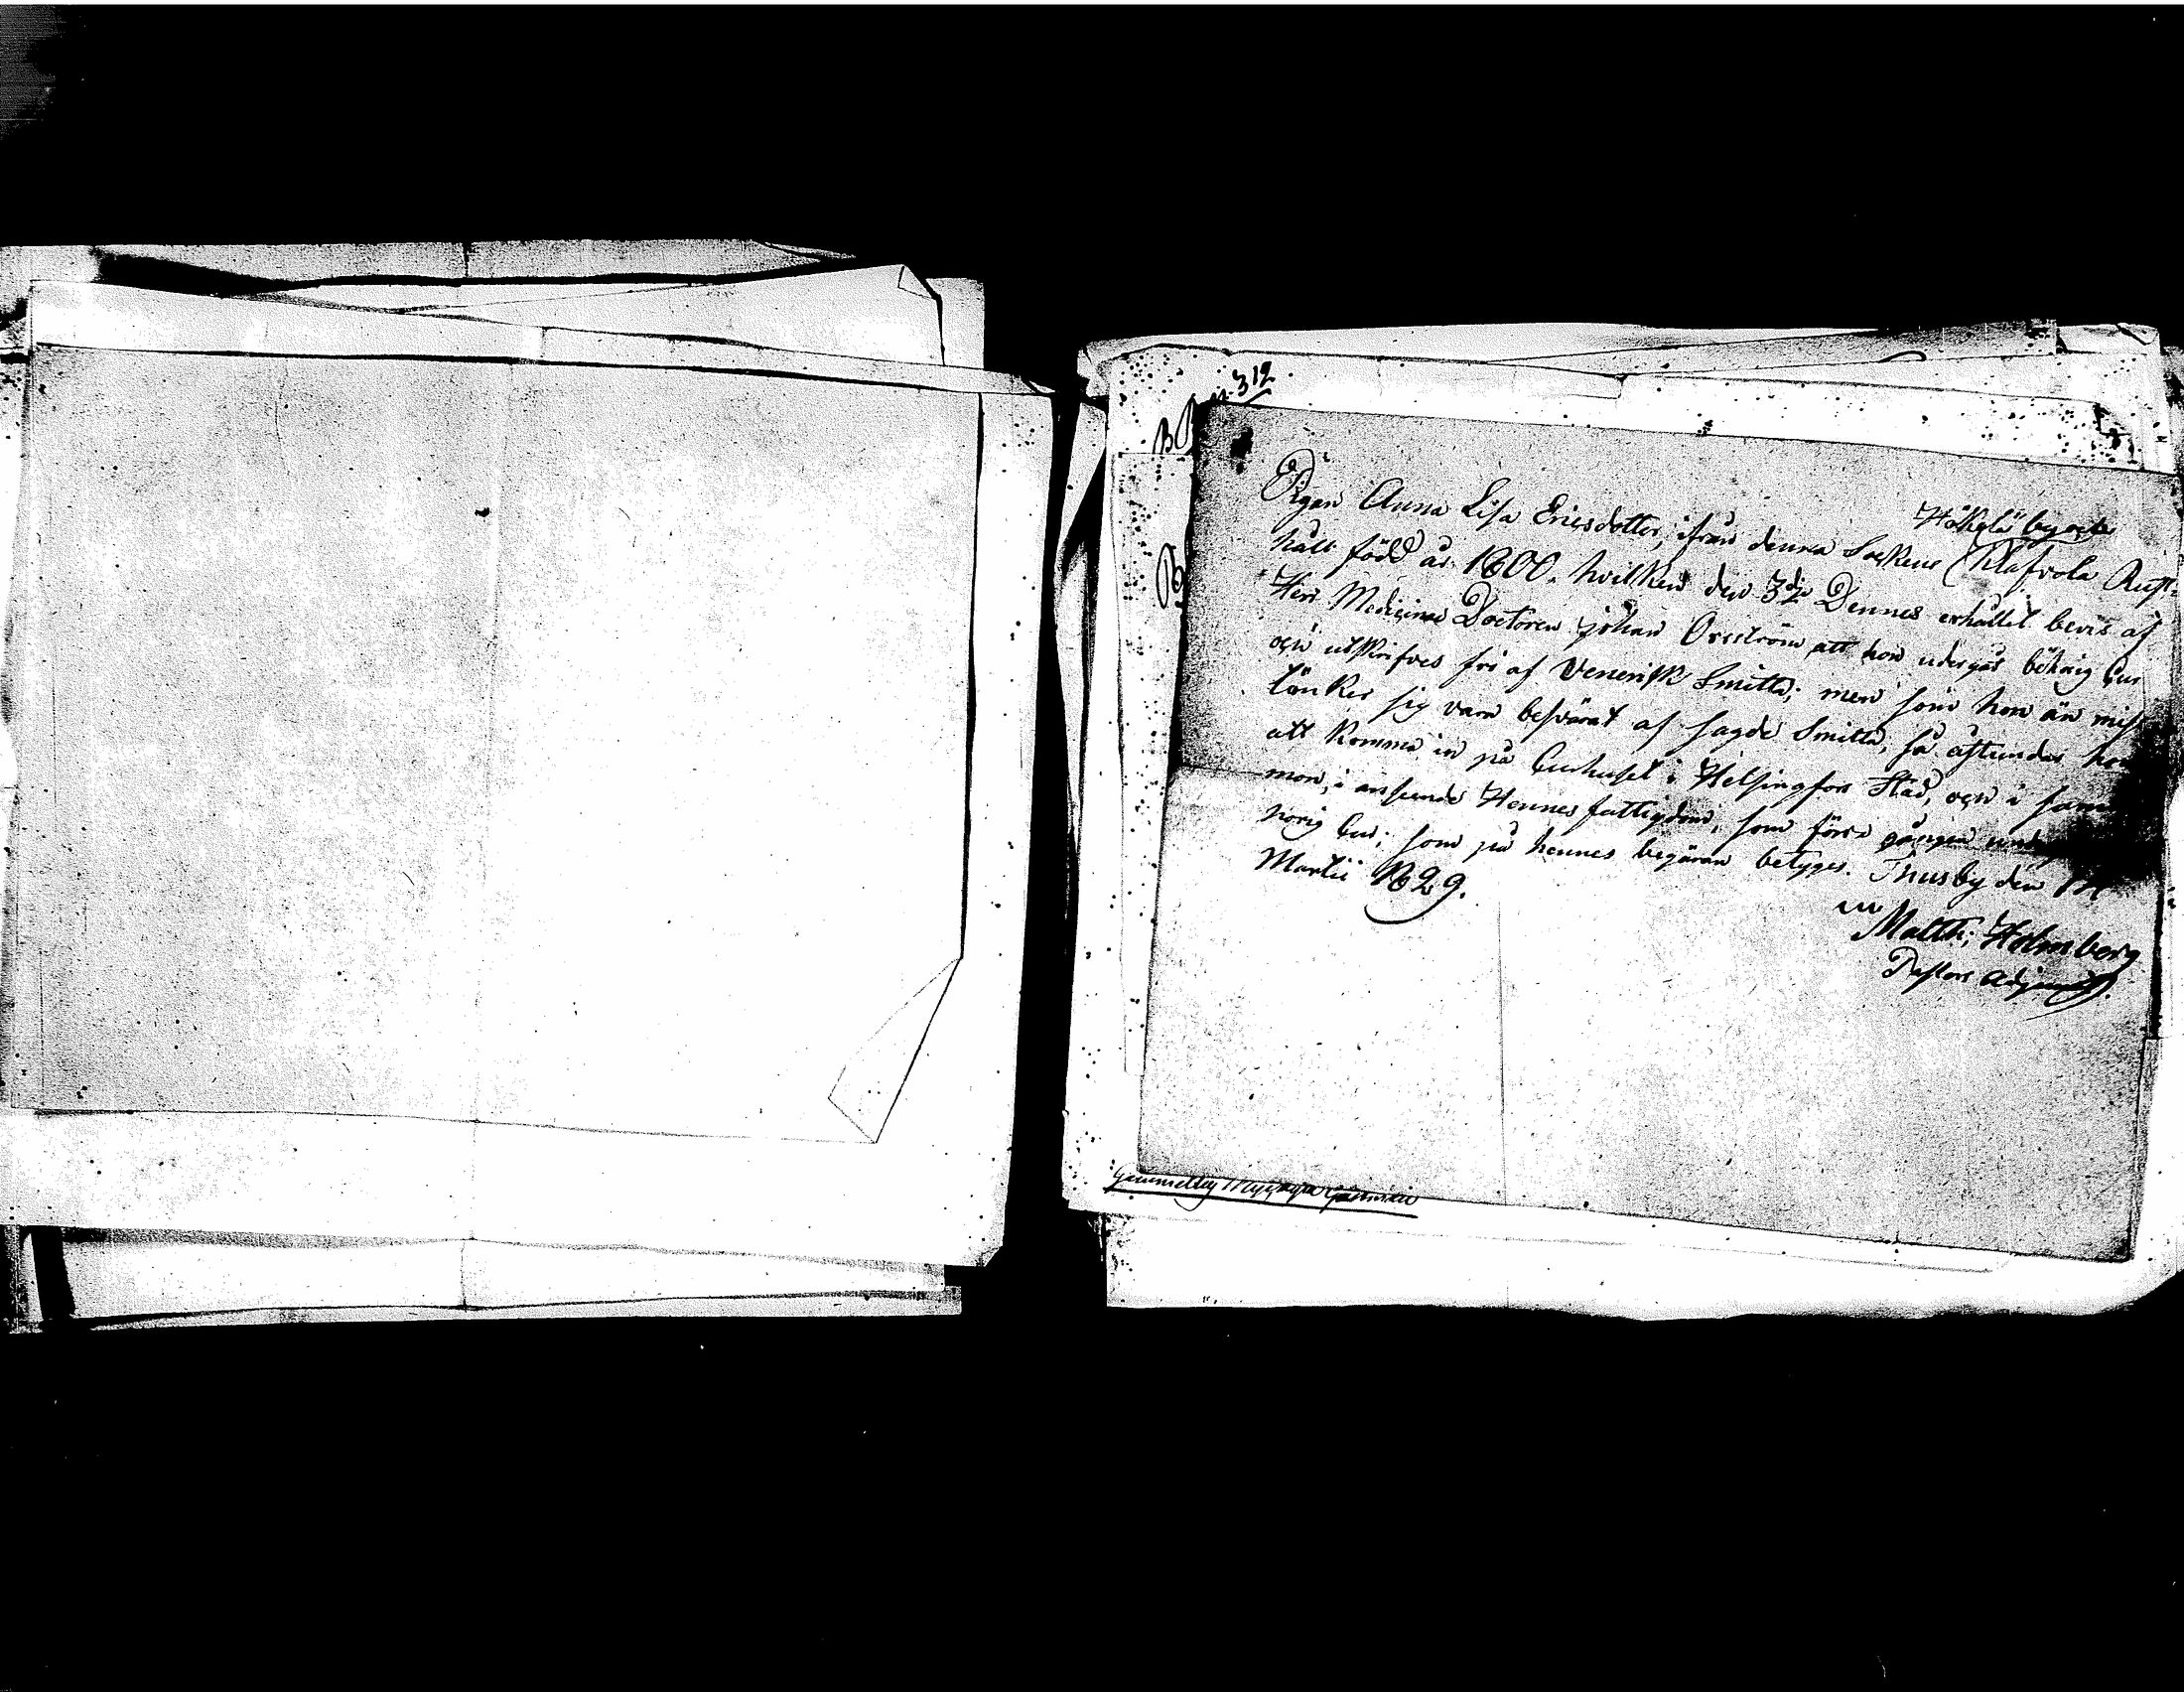 n. 312
Pigan Anna Lisa Ericsdotter, ifrån denna Sockens Klafvola Rust-
Håkela by och
håll född år 1800. hvilken den 3dje Dennes erhållit bevis af
Herr Medicinæ Doctoren Johan Orrström att hon undergåt böhörig Cur
och utskrifves fri af Venerisk Smitta; men som hon än miss
tänker sig vara besvärat af sagde Smitta, så åstundar hon
att komma in på Curhuset i Helsingfors Stad, och i sam
mon, i anseende Hennes fattigdom, som förra gången
hörig Cur; som på hennes begäran betyges. Thusby den
Martii 1829.
Matth; Holmberg
Pastors Adjunct.